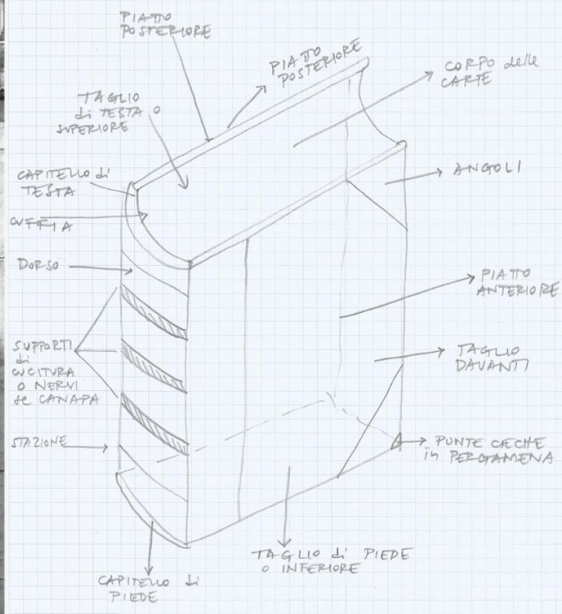 PIATTO
POSTERIORE
PIATTO
POSTERIORE
CORPO delle
CARTE
TAGLIO
di TESTA O
SUPERIORE
CAPITELLO di
TESTA
CUFFIA
ANGOLI
DORSO
PIATTO
ANTERIORE
SUPPORTI
di
CUCITURA
O NERVI
se CANAPA
TAGLIO
DAVANTI
STAZIONE
PUNTE CIECHE
in PERGAMENA
TAGLIO di PIEDE
O INFERIORE
CAPITELLO di
PIEDE